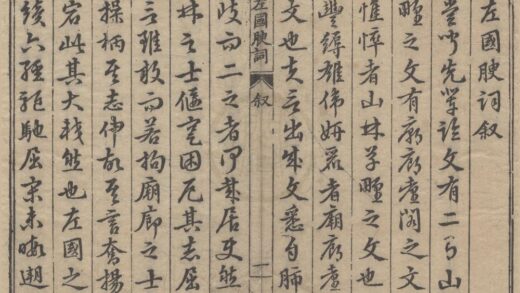 左國腴詞叙
嘗聞先輩論文有二曰山
壄之文有廟廊臺閣之文
憔悴者山林草壄之文也
豐縟雄偉妍麗者廟廊臺
文也夫言出成文悉自肺
左國腴詞 叙 一
歧而二之者何居使然
林之士偃蹇困厄其志屈
言雖敢而若拘廟廊之士
操柄其志伸故其言奮揚
宕此其大較然也左國之
續六經馳屈宋未